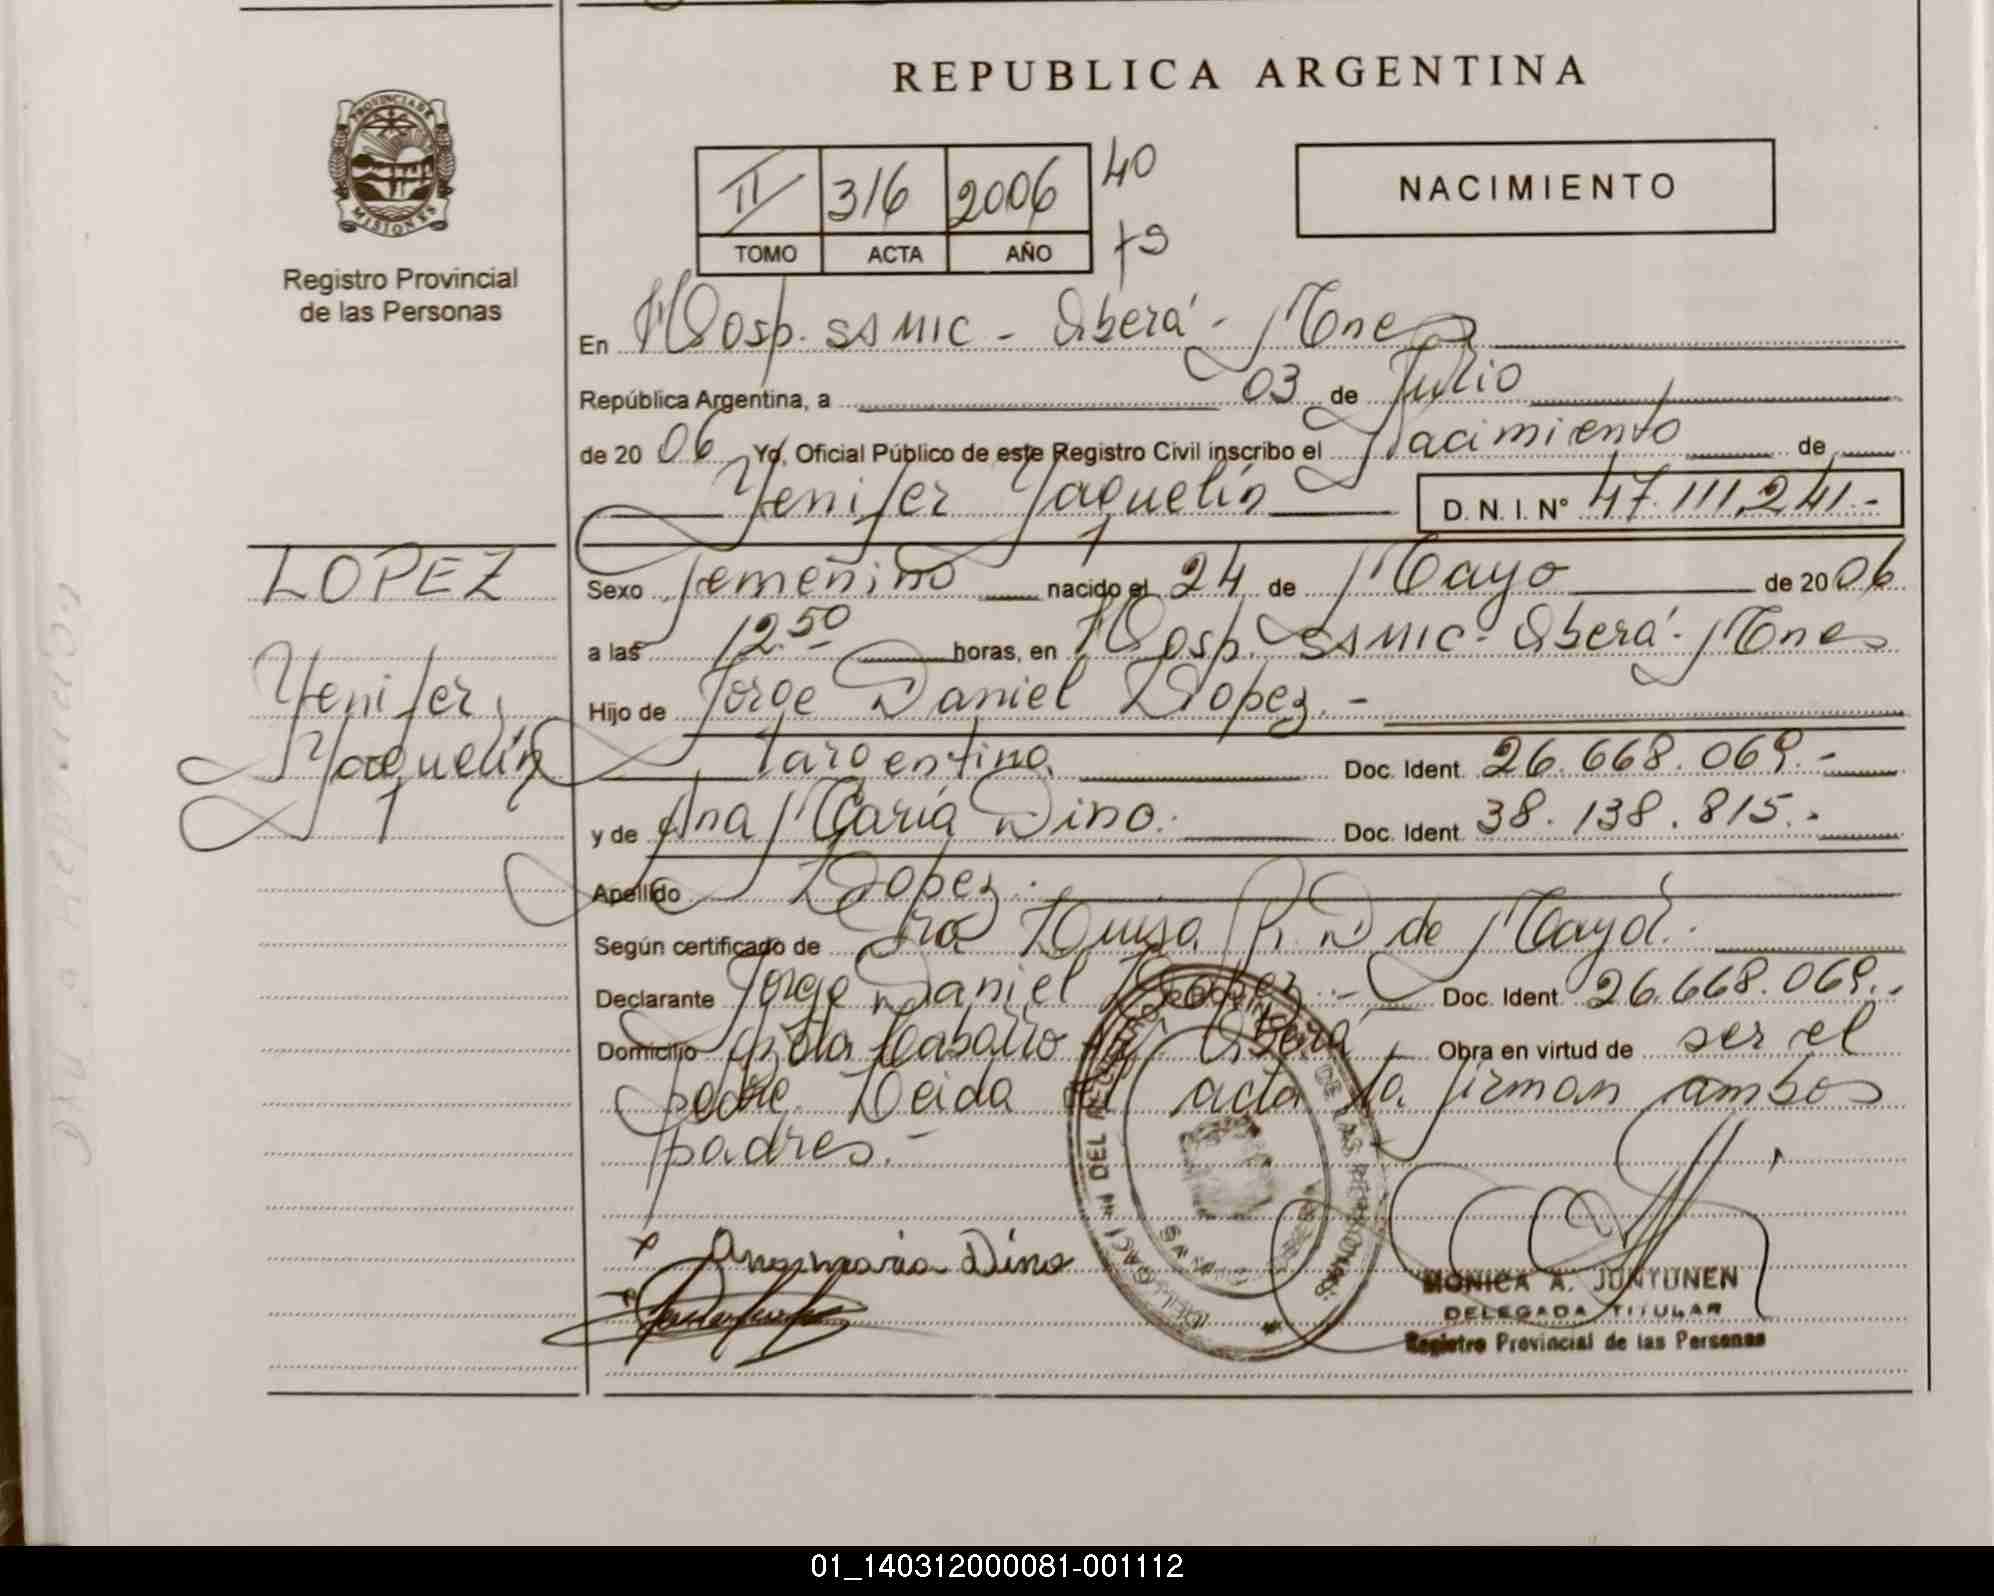 REPUBLICA ARGENTINA
PROVINCIA DE
MISIONES
Registro Provincial
de las Personas
II 316 2006 40
TOMO ACTA AÑO
NACIMIENTO
En Hosp. SAMIC - Oberá - Mnes
República Argentina, a 03 de Julio
de 2006 Yo, Oficial Público de este Registro Civil inscribo el Nacimiento de
Yenifer Yaquelín D. N. I. N° 47.111.241.-
LOPEZ
Yenifer
Yaquelín
Sexo femenino nacido el 24 de Mayo de 2006
a las 12.50 horas, en Hosp. SAMIC - Oberá - Mnes
Hijo de Jorge Daniel Lopez.-
argentino Doc. Ident. 26.668.069.-
y de Ana María Dino. Doc. Ident. 38.138.815.-
Apellido Lopez.
Según certificado de Dra Luisa R. D de Mayol.
Declarante Jorge Daniel Lopez.- Doc. Ident. 26.668.069.-
Domicilio Oberá Obra en virtud de ser el
padre. Leida el acta la firman ambos
padres.-
Anamaria Dino
MONICA A. JUNTUNEN
DELEGADA TITULAR
Registro Provincial de las Personas
01_140312000081-001112